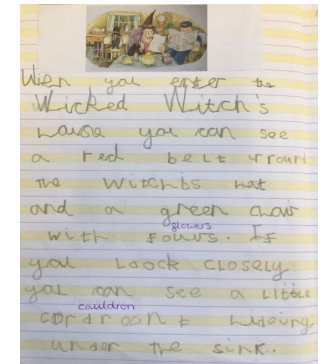 Wen you enter the
Wicked Witch's
House you can see
a red belt urround
the witchbs hat
and a green chair
flowers
with fouws. If
you loock closely
you can see a little
cauldron
cordroont hideing
under the sink.